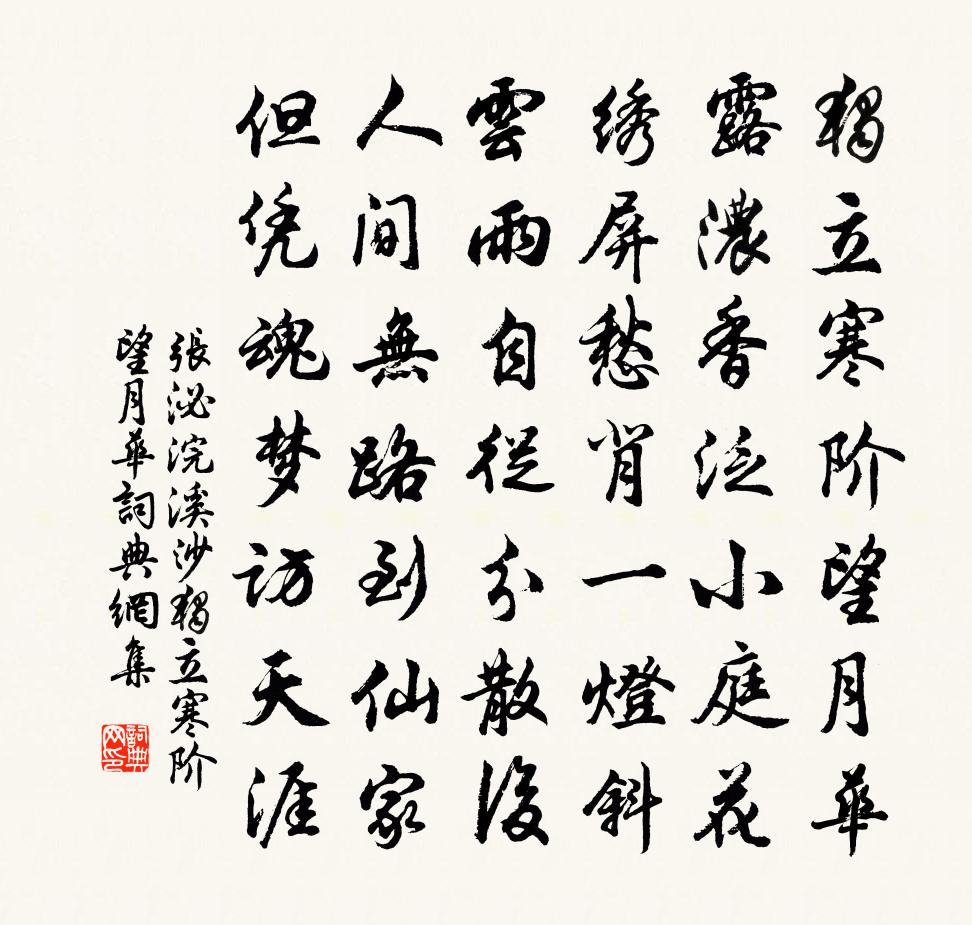 獨立寒阶望月華
露濃香泛小庭花
绣屏愁背一燈斜
雲雨自從分散後
人間無路到仙家
但凭魂梦访天涯
張泌浣溪沙獨立寒阶
望月華詞典網集
詞典
网印